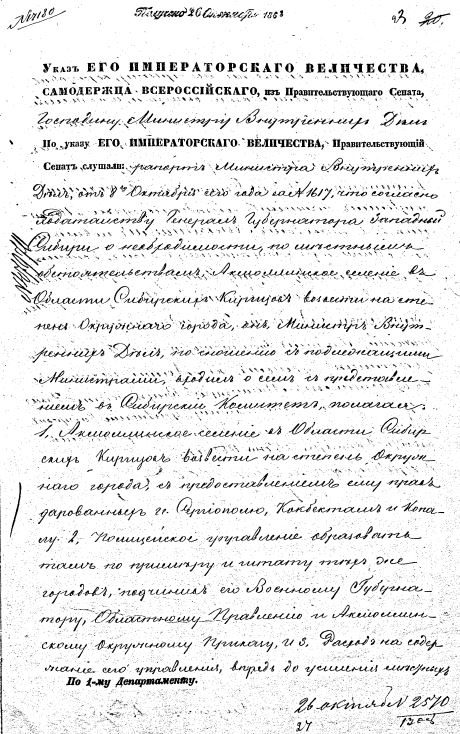 N 7180 Получено 26 Октября 1862
Указъ ЕГО ИМПЕРАТОРСКАГО ВЕЛИЧЕСТВА,
САМОДЕРЖЦА ВСЕРОССІЙСКАГО, изъ Правительствующаго Сената,
Господину Министру Внутреннихъ Дѣлъ
По указу ЕГО ИМПЕРАТОРСКАГО ВЕЛИЧЕСТВА, Правительствующій
Сенатъ слушали: рапортъ Министра Внутреннихъ
Дѣлъ, отъ 8го Октября сего года за № 1617, что согласно
ходатайству Генералъ Губернатора Западной
Сибири о необходимости, по мѣстнымъ
обстоятельствамъ, Акмоллинское селеніе въ
Области Сибирскихъ Киргизовъ возвести на сте-
пень Окружнаго города, онъ, Министръ Внут-
реннихъ Дѣлъ, по сношенію съ подлежащими
Министрами, входилъ о семъ съ представле-
ніемъ въ Сибирскій Комитетъ, полагая:
1, Акмоллинское селеніе въ Области Сибир-
скихъ Киргизовъ возвести на степень Окруж-
наго города, съ предоставленіемъ ему правъ
дарованныхъ гг. Аягозу, Кокбектамъ и Копа-
лу. 2, Полицейское управленіе образовать
тамъ по примѣру и штату тѣхъ же
городовъ, подчинивъ его Военному Губерна-
тору, Областному Правленію и Акмоллин-
скому Окружному Приказу, и 3, Расходъ на содер-
жаніе сего управленія, впредь до усиленія мѣстныхъ
По 1-му Департаменту.
26 октября N 2570
27